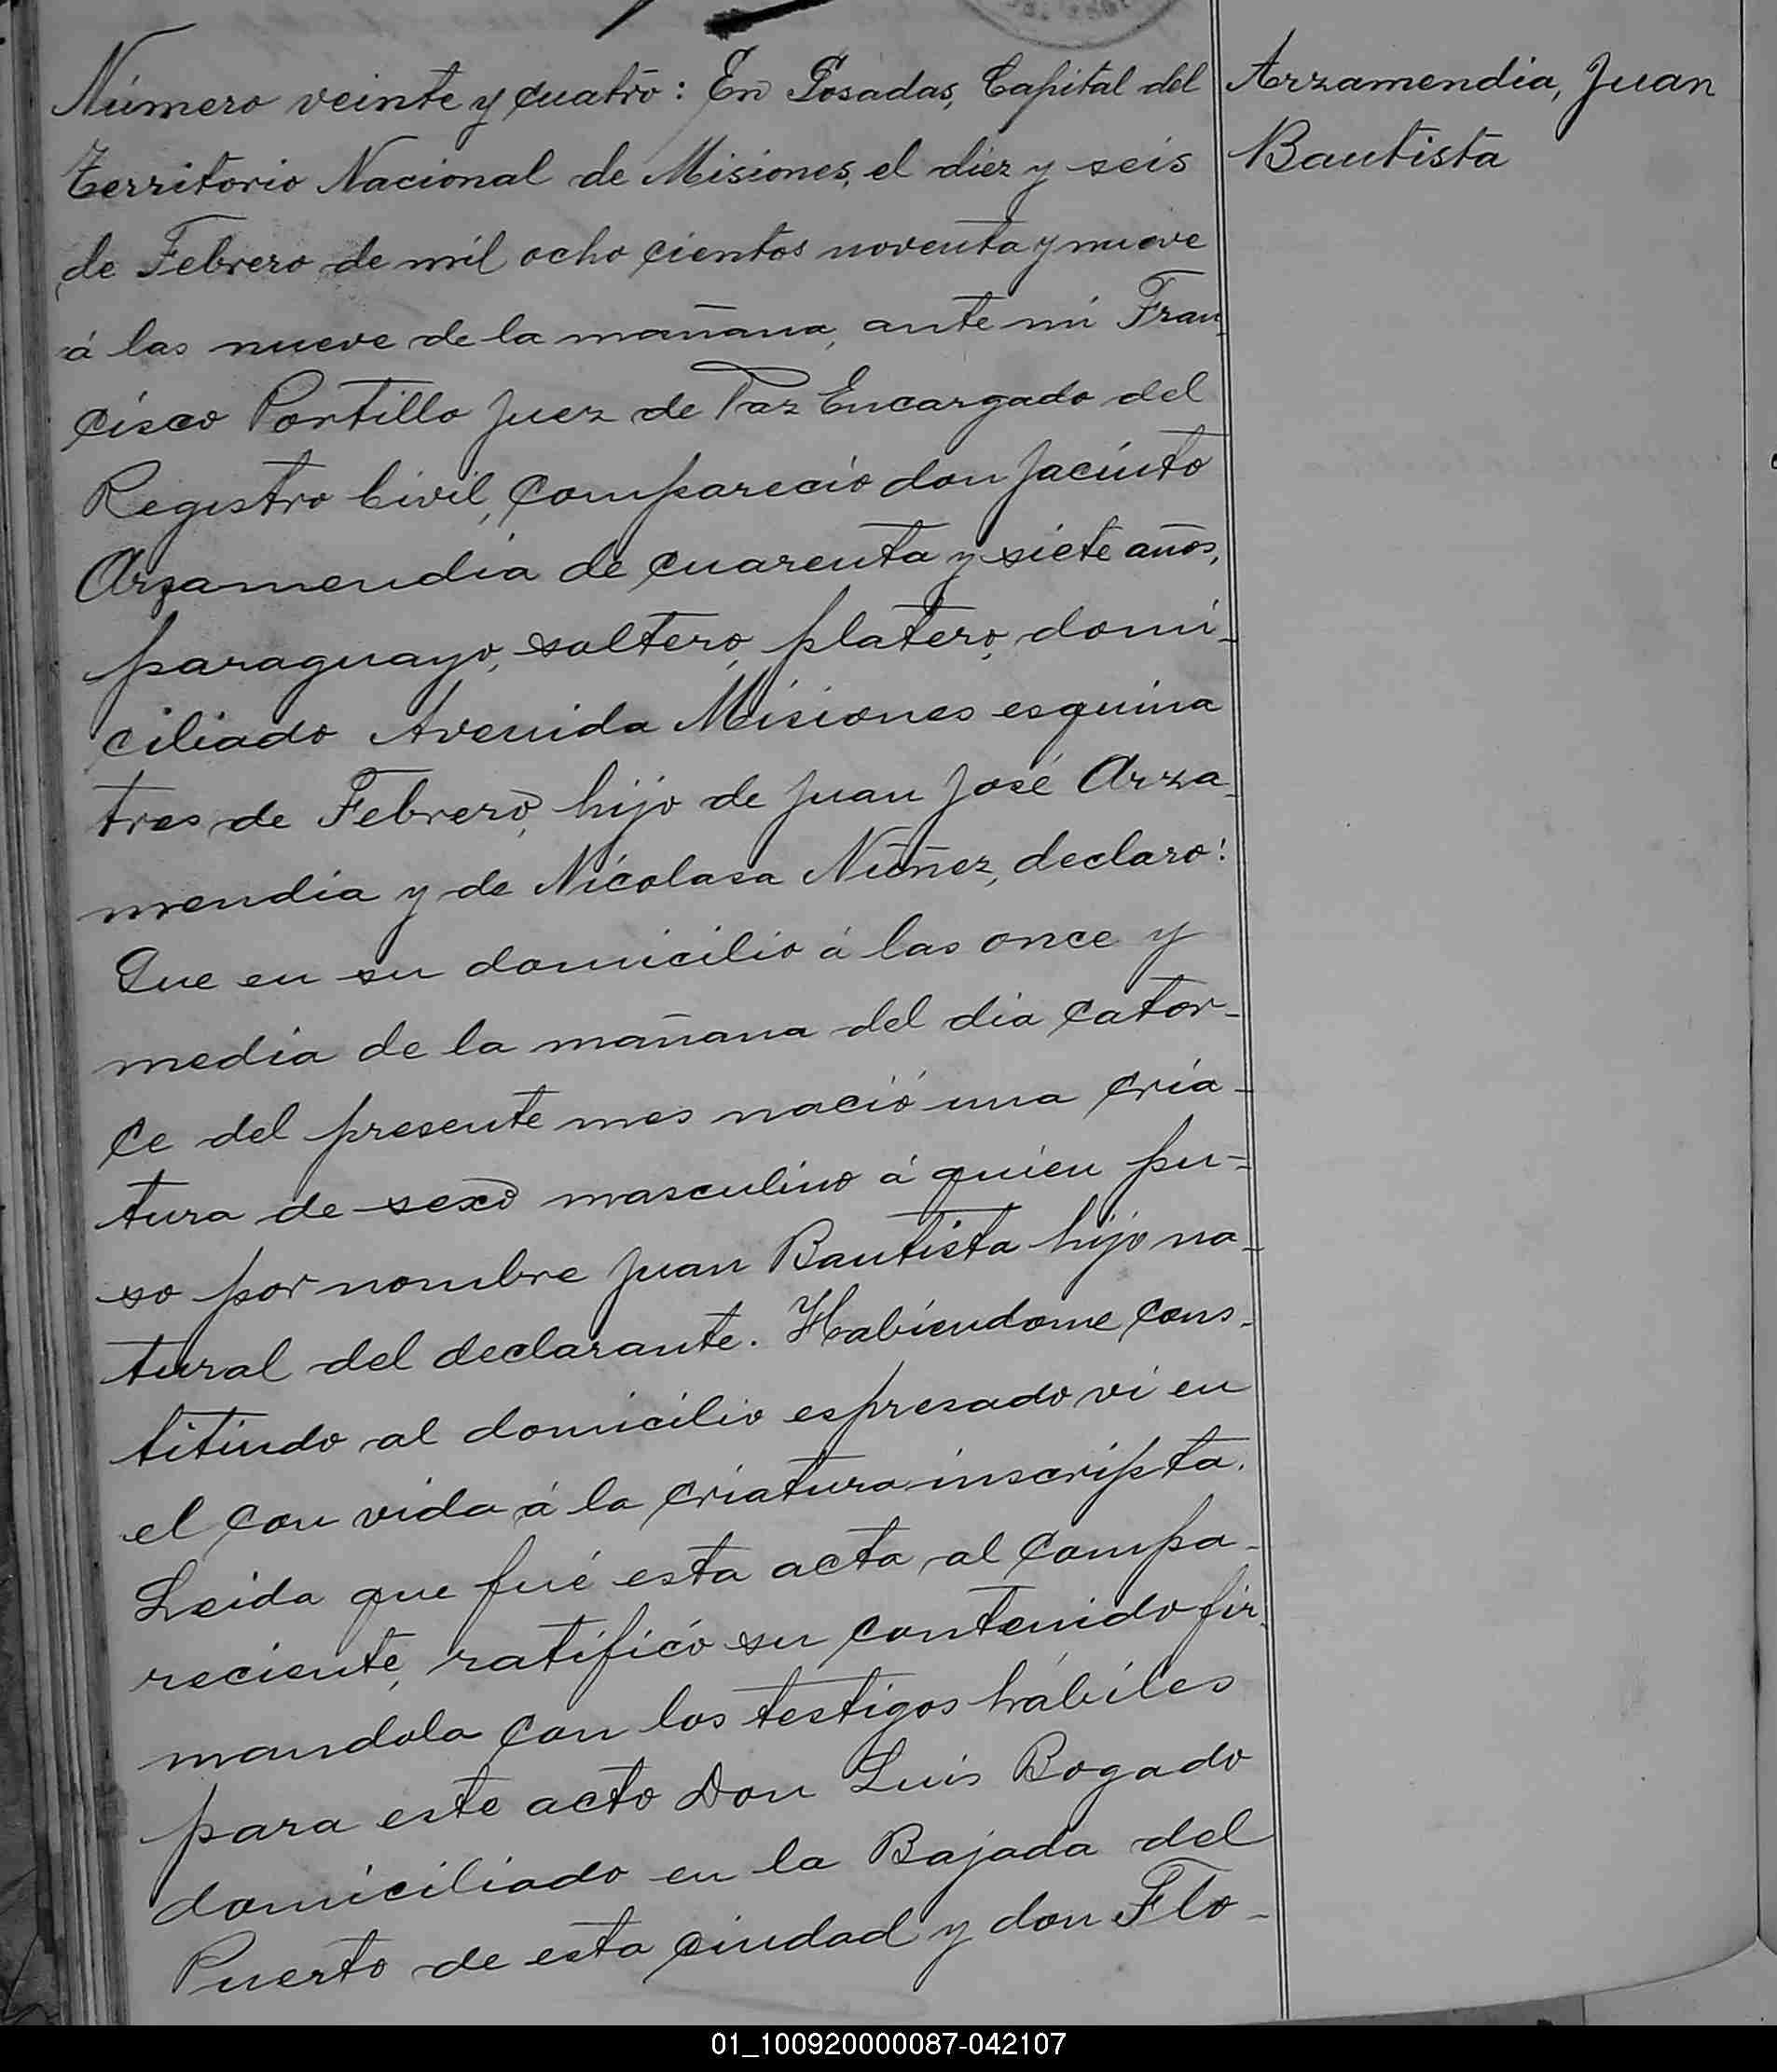 Número veinte y cuatro: En Posadas, Capital del
Territorio Nacional de Misiones, el diez y seis
de Febrero de mil ocho cientos noventa y nueve
á las nueve de la mañana, ante mi Fran-
cisco Portillo Juez de Paz Encargado del
Registro Civil, compareció don Jacinto
Arzamendia de cuarenta y siete años,
paraguayo, soltero, platero, domi-
ciliado Avenida Misiones esquina
tres de Febrero, hijo de Juan José Arza-
mendia y de Nicolasa Núñez, declaro:
Que en su domicilio á las once y
media de la mañana del dia cator-
ce del presente mes nació una cria-
tura de sexo masculino á quien pu-
so por nombre Juan Bautista hijo na-
tural del declarante. Habiendome cons-
titiudo al domicilio espresado vi en
el con vida á la criatura inscripta.
Leida que fué esta acta al compa-
reciente, ratificó su contenido fir-
mandola con los testigos hábiles
para este acto Don Luis Bogado
domiciliado en la Bajada del
Puerto de esta ciudad y don Flo-
Arzamendia, Juan
Bautista
01_100920000087-042107